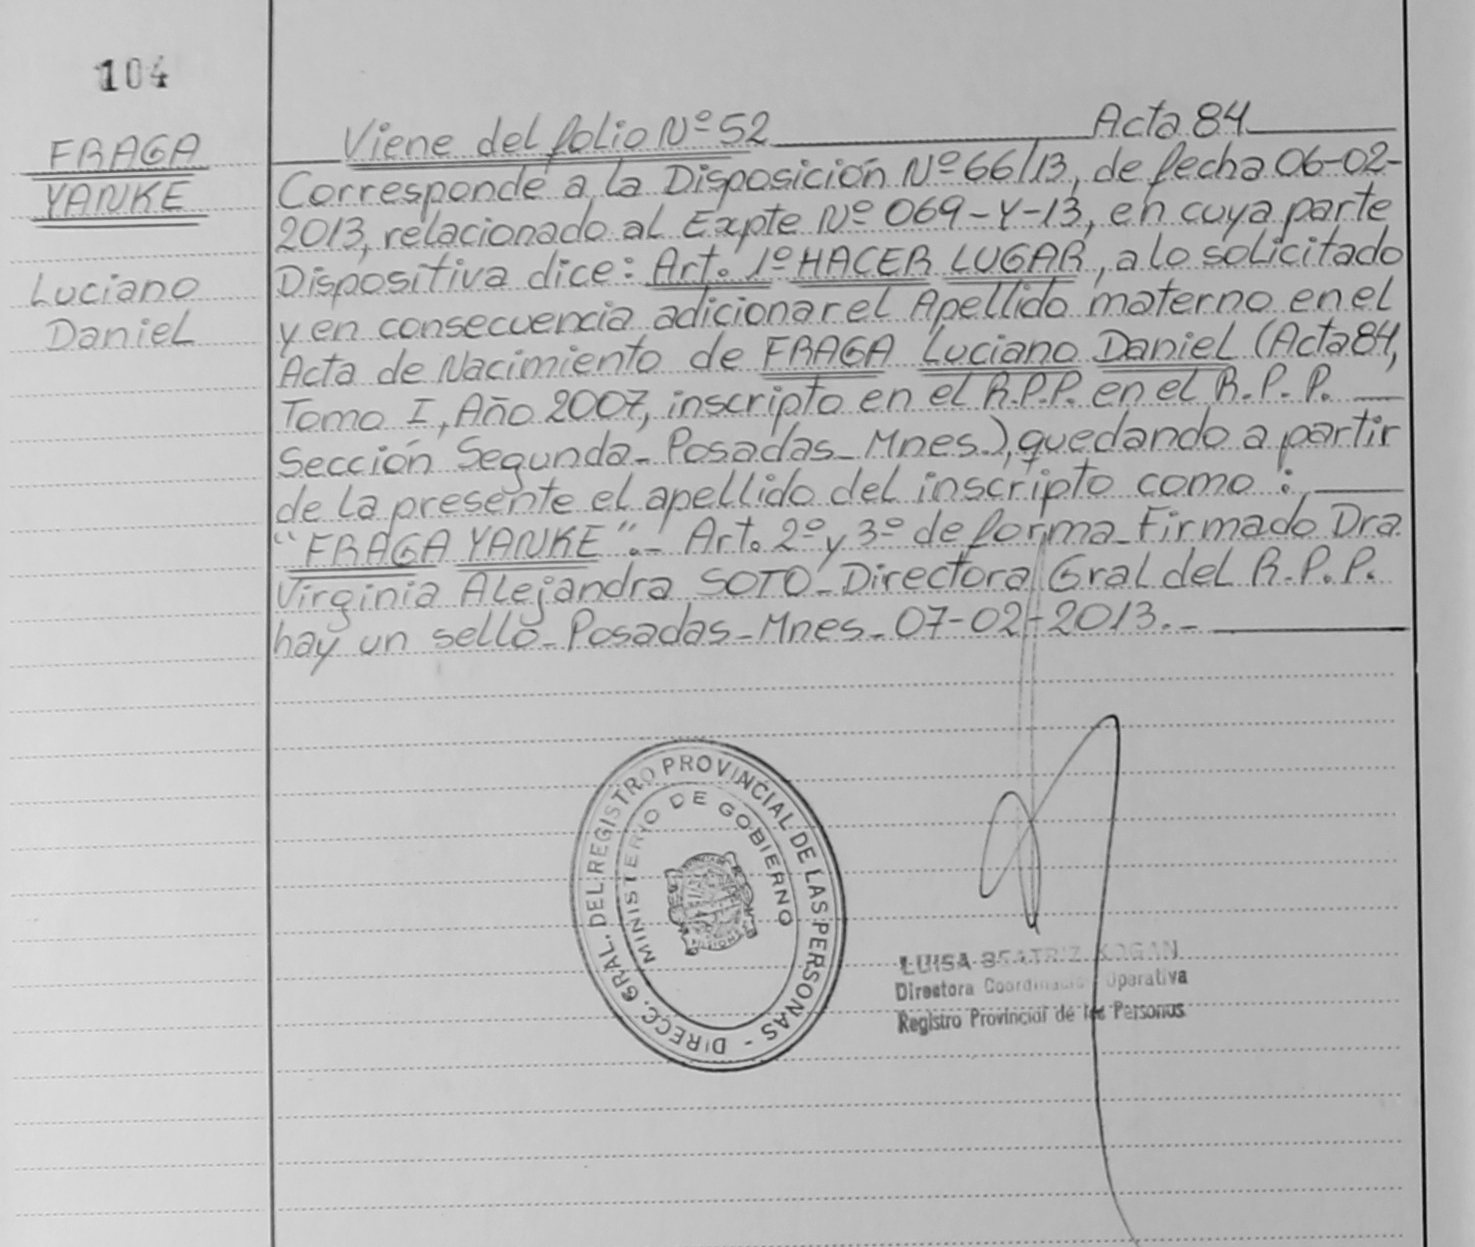 104
FRAGA
YANKE
Luciano
Daniel
Viene del folio Nº 52 Acta 84
Corresponde a la Disposición Nº 66/13, de fecha 06-02-
2013, relacionado al Expte Nº 069-Y-13, en cuya parte
Dispositiva dice: Art. 1º HACER LUGAR, a lo solicitado
y en consecuencia adicionar el Apellido materno en el
Acta de Nacimiento de FRAGA Luciano Daniel (Acta 84,
Tomo I, Año 2007, inscripto en el R.P.P. en el R.P.P.
Sección Segunda_ Posadas_ Mnes.), quedando a partir
de la presente el apellido del inscripto como :
"FRAGA YANKE".- Art. 2º y 3º de forma_ Firmado Dra.
Virginia Alejandra SOTO_ Directora Gral del R.P.P.
hay un sello_ Posadas_ Mnes_ 07-02-2013._
DIRECC. GRAL. DEL REGISTRO PROVINCIAL DE LAS PERSONAS -
MINISTERIO DE GOBIERNO
MISIONES
LUISA BEATRIZ KOGAN
Directora Coordinacion Operativa
Registro Provincial de las Personas